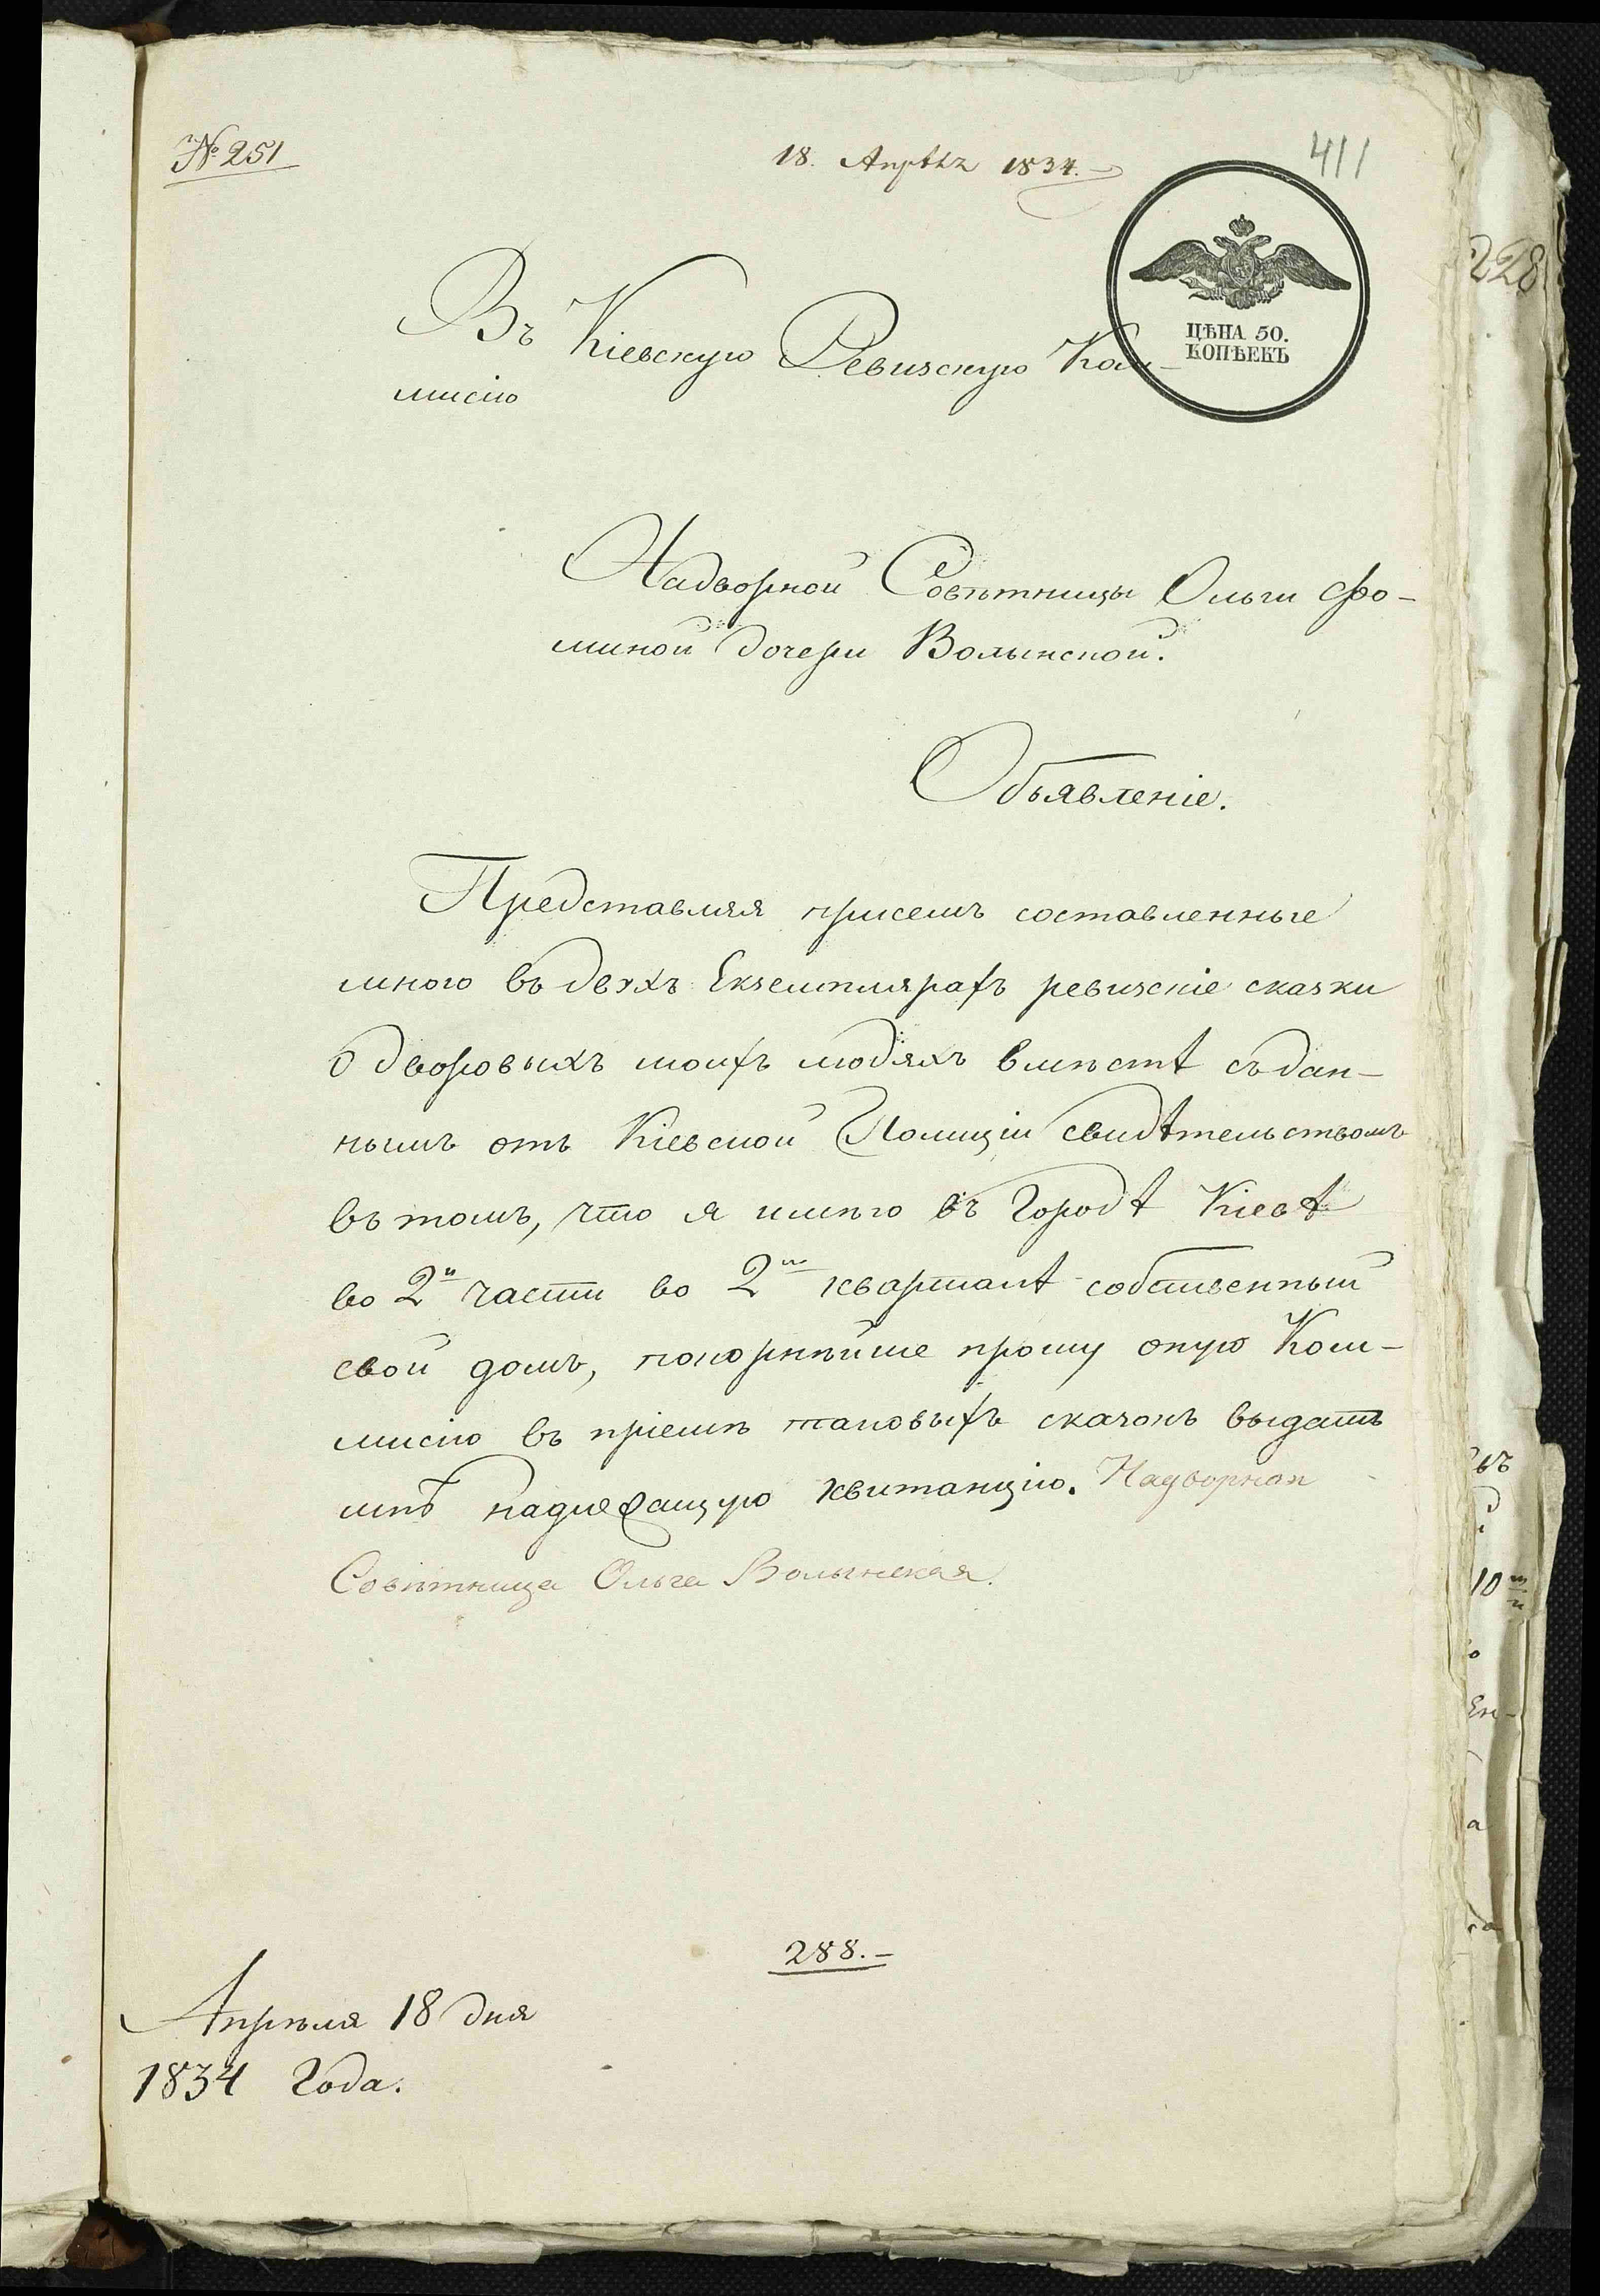 № 251
18. Апрѣля 1834.
411
ЦѢНА 50.
КОПѢЕКЪ
228
Въ Кіевскую Ревизскую Ком-
мисію
Надворной Совѣтницы Ольги Фо-
миной дочери Волынской.
Объявленіе.
Представляя присемъ составленные
мною въ двухъ Екземплярахъ ревизскіе сказки
о дворовыхъ моихъ людяхъ вмѣстѣ съ дан-
нымъ отъ Кіевской Полиціи свидѣтельствомъ
въ томъ, что я имѣю въ Городѣ Кіевѣ
во 2й части во 2м кварталѣ собственный
свой домъ, покорнѣйше прошу оную Ком-
мисію въ пріемѣ таковыхъ сказокъ выдать
мнѣ надлежащую квитанцію. Надворная
Совѣтница Ольга Волынская.
288.-
Апрѣля 18 дня
1834 Года.